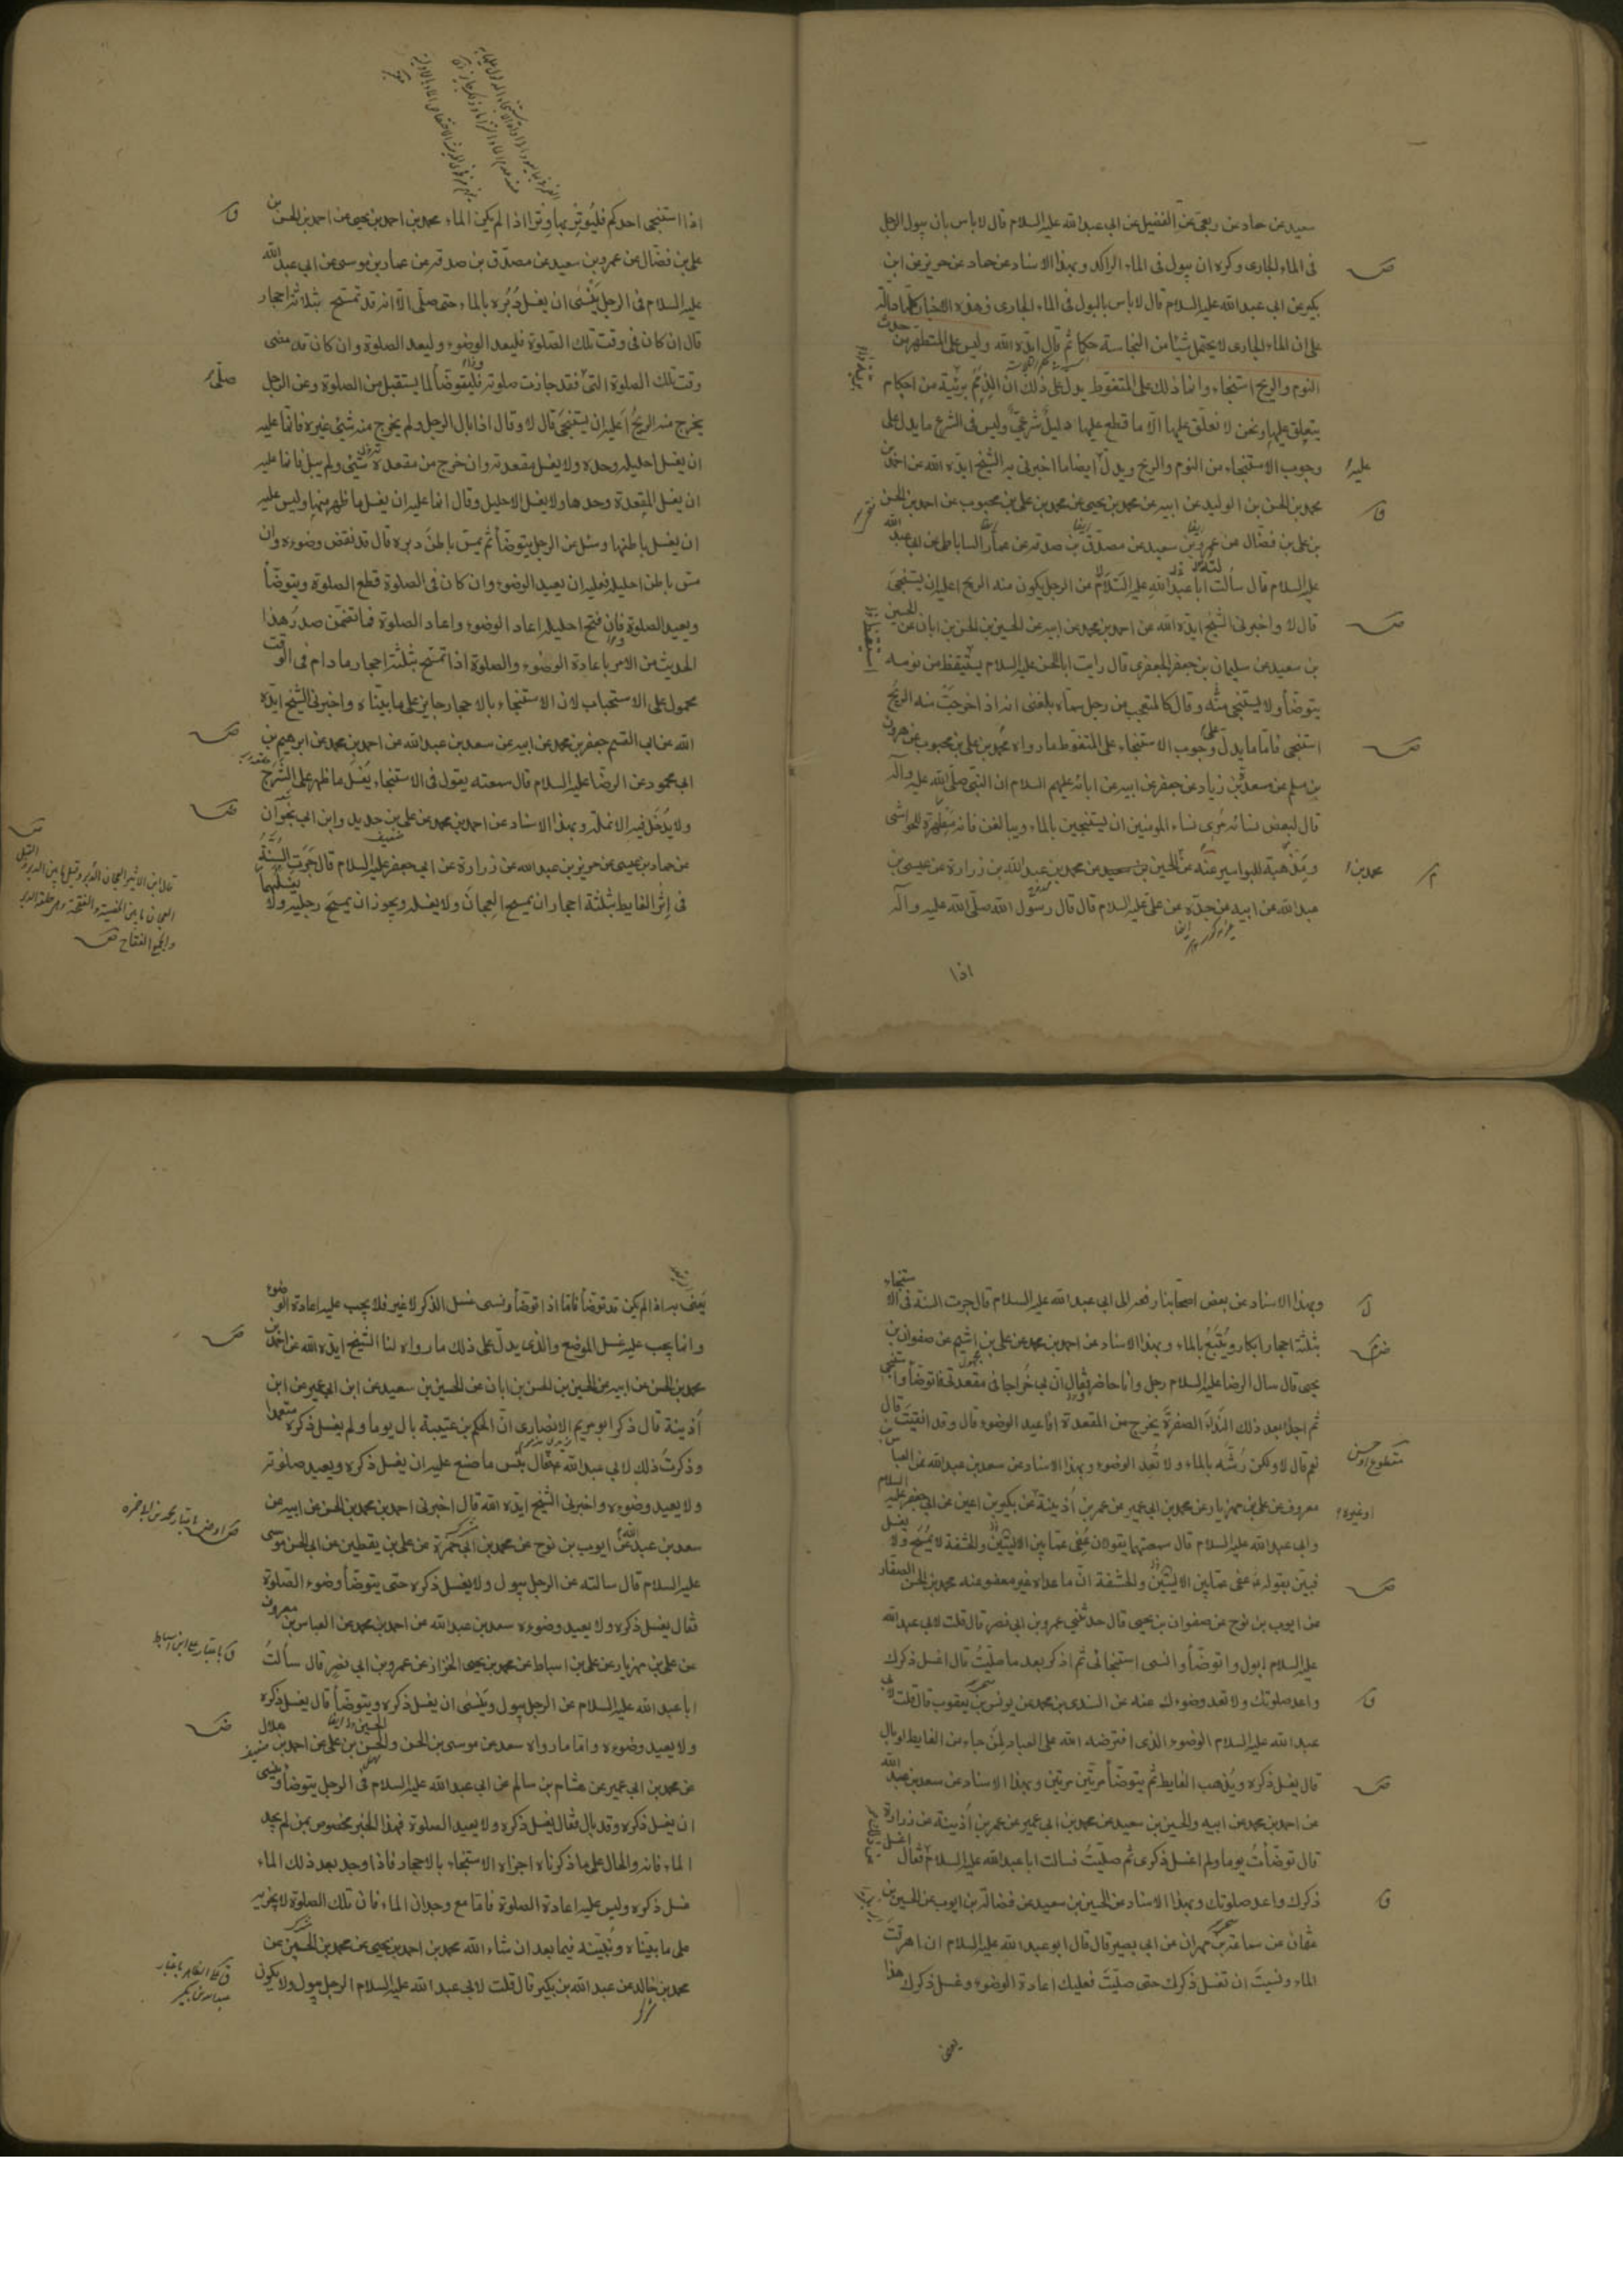 سعيد عن حماد عن ربعى عن الفضيل عن ابى عبدالله عليه السلام قال لا باس بان يبول الرجل
فى الماء الجارى وكره ان يبول فى الماء الراكد وبهذا الاسناد عن حماد عن حريز عن ابن
بكير عن ابى عبدالله عليه السلام قال لا باس بالبول فى الماء الجارى فهذه الاخبار كلها دالة
على ان الماء الجارى لا يحتمل شيئا من النجاسة حكما ثم قال ايده الله وليس على المتطهر من حدث
النوم والريح استنجاء وانما ذلك على المتغوط يدل على ذلك ان الذمم بريئة من احكام
يتعلق عليها ونحن لا نعلق عليها الا ما قطع عليها دليل شرعى وليس فى الشرع ما يدل على
وجوب الاستنجاء من النوم والريح ويدل ايضا ما اخبرنى به الشيخ ايده الله عن احمد بن
محمد بن الحسن بن الوليد عن ابيه عن محمد بن يحيى عن محمد بن على بن محبوب عن احمد بن الحسن
بن على بن فضال عن عمرو بن سعيد عن مصدق بن صدقة عن عمار الساباطى عن ابى عبد الله
عليه السلام قال سألت ابا عبدالله عليه السلام عن الرجل يكون منه الريح اعليه ان يستنجى
قال لا واخبرنى الشيخ ايده الله عن احمد بن محمد عن ابيه عن الحسين بن الحسن بن ابان عن الحسين
بن سعيد عن سليمان بن جعفر الجعفرى قال رايت ابا الحسن عليه السلام يستيقظ من نومه
يتوضأ ولا يستنجى منه وقال كالمتعجب من رجل سماه بلغنى انه اذا خرجت منه الريح
استنجى فاما ما يدل على وجوب الاستنجاء على المتغوط ما رواه محمد بن على بن محبوب عن هرون
بن مسلم عن مسعدة بن زياد عن جعفر عن ابيه عن ابائه عليهم السلام ان النبى صلى الله عليه وآله
قال لبعض نسائه مرى نساء المومنين ان يستنجين بالماء ويبالغن فانه مطهرة للحواشى
ومذهبة للبواسير عنه عن الحسين بن سعيد عن محمد بن عبدالله بن زرارة عن عيسى بن
عبدالله عن ابيه عن جده عن على عليه السلام قال قال رسول الله صلى الله عليه وآله
اذا
اذا استنجى احدكم فليوتر بها وترا اذا لم يكن الماء محمد بن احمد بن يحيى عن احمد بن الحسن بن
على بن فضال عن عمرو بن سعيد عن مصدق بن صدقة عن عمار بن موسى عن ابى عبد الله
عليه السلام فى الرجل ينسى ان يغسل دبره بالماء حتى صلى الا انه قد تمسح بثلاثة احجار
قال ان كان فى وقت تلك الصلوة فليعد الوضوء وليعد الصلوة وان كان قد مضى
وقت تلك الصلوة التى فقد جازت صلوته فليتوضأ لما يستقبل من الصلوة وعن الرجل
يخرج منه الريح أعليه ان يستنجى قال لا وقال اذا بال الرجل ولم يخرج منه شئ غيره فانما عليه
ان يغسل احليله وحده ولا يغسل مقعدته وان خرج من مقعدته شئ ولم يبل فانما عليه
ان يغسل المقعدة وحدها ولا يغسل الاحليل وقال انما عليه ان يغسل ما ظهر منها وليس عليه
ان يغسل باطنها وسئل عن الرجل يتوضأ ثم يمس باطن دبره قال قد نقض وضوءه وان
مس باطن احليله فعليه ان يعيد الوضوء وان كان فى الصلوة قطع الصلوة ويتوضأ
ويعيد الصلوة وان فتح احليله اعاد الوضوء واعاد الصلوة فما تضمن صدر هذا
الحديث من الامر باعادة الوضوء والصلوة اذا تمسح بثلثة احجار ما دام فى الوقت
محمول على الاستحباب لان الاستنجاء بالاحجار جايز على ما بيناه واخبرنى الشيخ ايده
الله عن ابى القسم جعفر بن محمد عن ابيه عن سعد بن عبدالله عن احمد بن محمد عن ابرهيم بن
ابى محمود عن الرضا عليه السلام قال سمعته يقول فى الاستنجاء يغسل ما ظهر على الشرج
ولا يدخل فيه الانملة وبهذا الاسناد عن احمد بن محمد عن على بن حديد وابن ابى نجران
عن حماد بن عيسى عن حريز بن عبدالله عن زرارة عن ابى جعفر عليه السلام قال جرت السنة
فى اثر الغايط بثلثة احجار ان يمسح العجان ولا يغسله ويجوز ان يمسح رجليه ولا يغسلهما
وبهذا الاسناد عن بعض اصحابنا رفعه الى ابى عبدالله عليه السلام قال جرت السنة فى الاستنجاء
بثلثة احجار ابكار ويتبع بالماء وبهذا الاسناد عن احمد بن محمد عن على بن اشيم عن صفوان بن
يحيى قال سال الرضا عليه السلام رجل وانا حاضر فقال ان بى خراجا فى مقعدتى فاتوضأ واستنجى
ثم اجد بعد ذلك الندا الصفرة يخرج من المقعدة افاعيد الوضوء قال وقد انقيت قال
نعم قال لا ولكن رشه بالماء ولا تعد الوضوء وبهذا الاسناد عن سعد بن عبدالله عن العباس بن
معروف عن على بن مهزيار عن محمد بن ابى عمير عن عمر بن أذينة عن بكير بن اعين عن ابى جعفر عليه السلام
وابى عبدالله عليه السلام قال سمعتهما يقولان عفى عما بين الاليتين والحشفة لا يمسح ولا يغسل
فبين بقوله عفى عما بين الاليتين والحشفة ان ما عداه غير معفو عنه محمد بن الحسن الصفار
عن ايوب بن نوح عن صفوان بن يحيى قال حدثنى عمرو بن ابى نصر قال قلت لابى عبدالله
عليه السلام ابول واتوضأ وانسى استنجائى ثم اذكر بعد ما صليت قال اغسل ذكرك
واعد صلوتك ولا تعد وضوءك عنه عن السندى بن محمد عن يونس بن يعقوب قال قلت لابى
عبدالله عليه السلام الوضوء الذى افترضه الله على العباد لمن جاء من الغايط او بال
قال يغسل ذكره ويذهب الغايط ثم يتوضأ مرتين مرتين وبهذا الاسناد عن سعد بن عبد الله
عن احمد بن محمد عن ابيه والحسين بن سعيد عن محمد بن ابى عمير عن عمر بن أذينة عن زرارة
قال توضأت يوما ولم اغسل ذكرى ثم صليت فسالت ابا عبدالله عليه السلام فقال اغسل
ذكرك واعد صلوتك وبهذا الاسناد عن الحسين بن سعيد عن فضالة بن ايوب عن الحسين بن
عثمان عن سماعة بن مهران عن ابى بصير قال قال ابو عبدالله عليه السلام ان اهرقت
الماء ونسيت ان تغسل ذكرك حتى صليت فعليك اعادة الوضوء وغسل ذكرك هذا
يعنى
يعنى به اذا لم يكن قد توضأ فاما اذا توضأ ونسى غسل الذكر لا غير فلا يجب عليه اعادة الوضوء
وانما يجب عليه غسل الموضع والذى يدل على ذلك ما رواه لنا الشيخ ايده الله عن احمد بن
محمد بن الحسن عن ابيه عن الحسين بن الحسن بن ابان عن الحسين بن سعيد عن ابن ابى عمير عن ابن
أذينة قال ذكر ابو مريم الانصارى ان الحكم بن عتيبة بال يوما ولم يغسل ذكره متعمدا
وذكرت ذلك لابى عبدالله فقال بئس ما صنع عليه ان يغسل ذكره ويعيد صلوته
ولا يعيد وضوءه واخبرنى الشيخ ايده الله قال اخبرنى احمد بن محمد بن الحسن عن ابيه عن
سعد بن عبدالله عن ايوب بن نوح عن محمد بن ابى حمزة عن على بن يقطين عن ابى الحسن موسى
عليه السلام قال سالته عن الرجل يبول ولا يغسل ذكره حتى يتوضأ وضوء الصلوة
فقال يغسل ذكره ولا يعيد وضوءه سعد بن عبدالله عن احمد بن محمد عن العباس بن معروف
عن على بن مهزيار عن على بن اسباط عن محمد بن يحيى الخزاز عن عمرو بن ابى نصر قال سألت
ابا عبدالله عليه السلام عن الرجل يبول وينسى ان يغسل ذكره ويتوضأ قال يغسل ذكره
ولا يعيد وضوءه واما ما رواه سعد عن موسى بن الحسن والحسن بن على عن احمد بن هلال
عن محمد بن ابى عمير عن هشام بن سالم عن ابى عبدالله عليه السلام فى الرجل يتوضأ وينسى
ان يغسل ذكره وقد بال فقال يغسل ذكره ولا يعيد الصلوة فهذا الخبر مخصوص بمن لم يجد
الماء فانه والحال على ما ذكرناه اجزاه الاستنجاء بالاحجار فاذا وجد بعد ذلك الماء
غسل ذكره وليس عليه اعادة الصلوة فاما مع وجدان الماء فان تلك الصلوة لا يجزيه
على ما بيناه ونبينه فيما بعد ان شاء الله محمد بن احمد بن يحيى عن محمد بن الحسين عن
محمد بن خالد عن عبدالله بن بكير قال قلت لابى عبدالله عليه السلام الرجل يبول ولا يكون